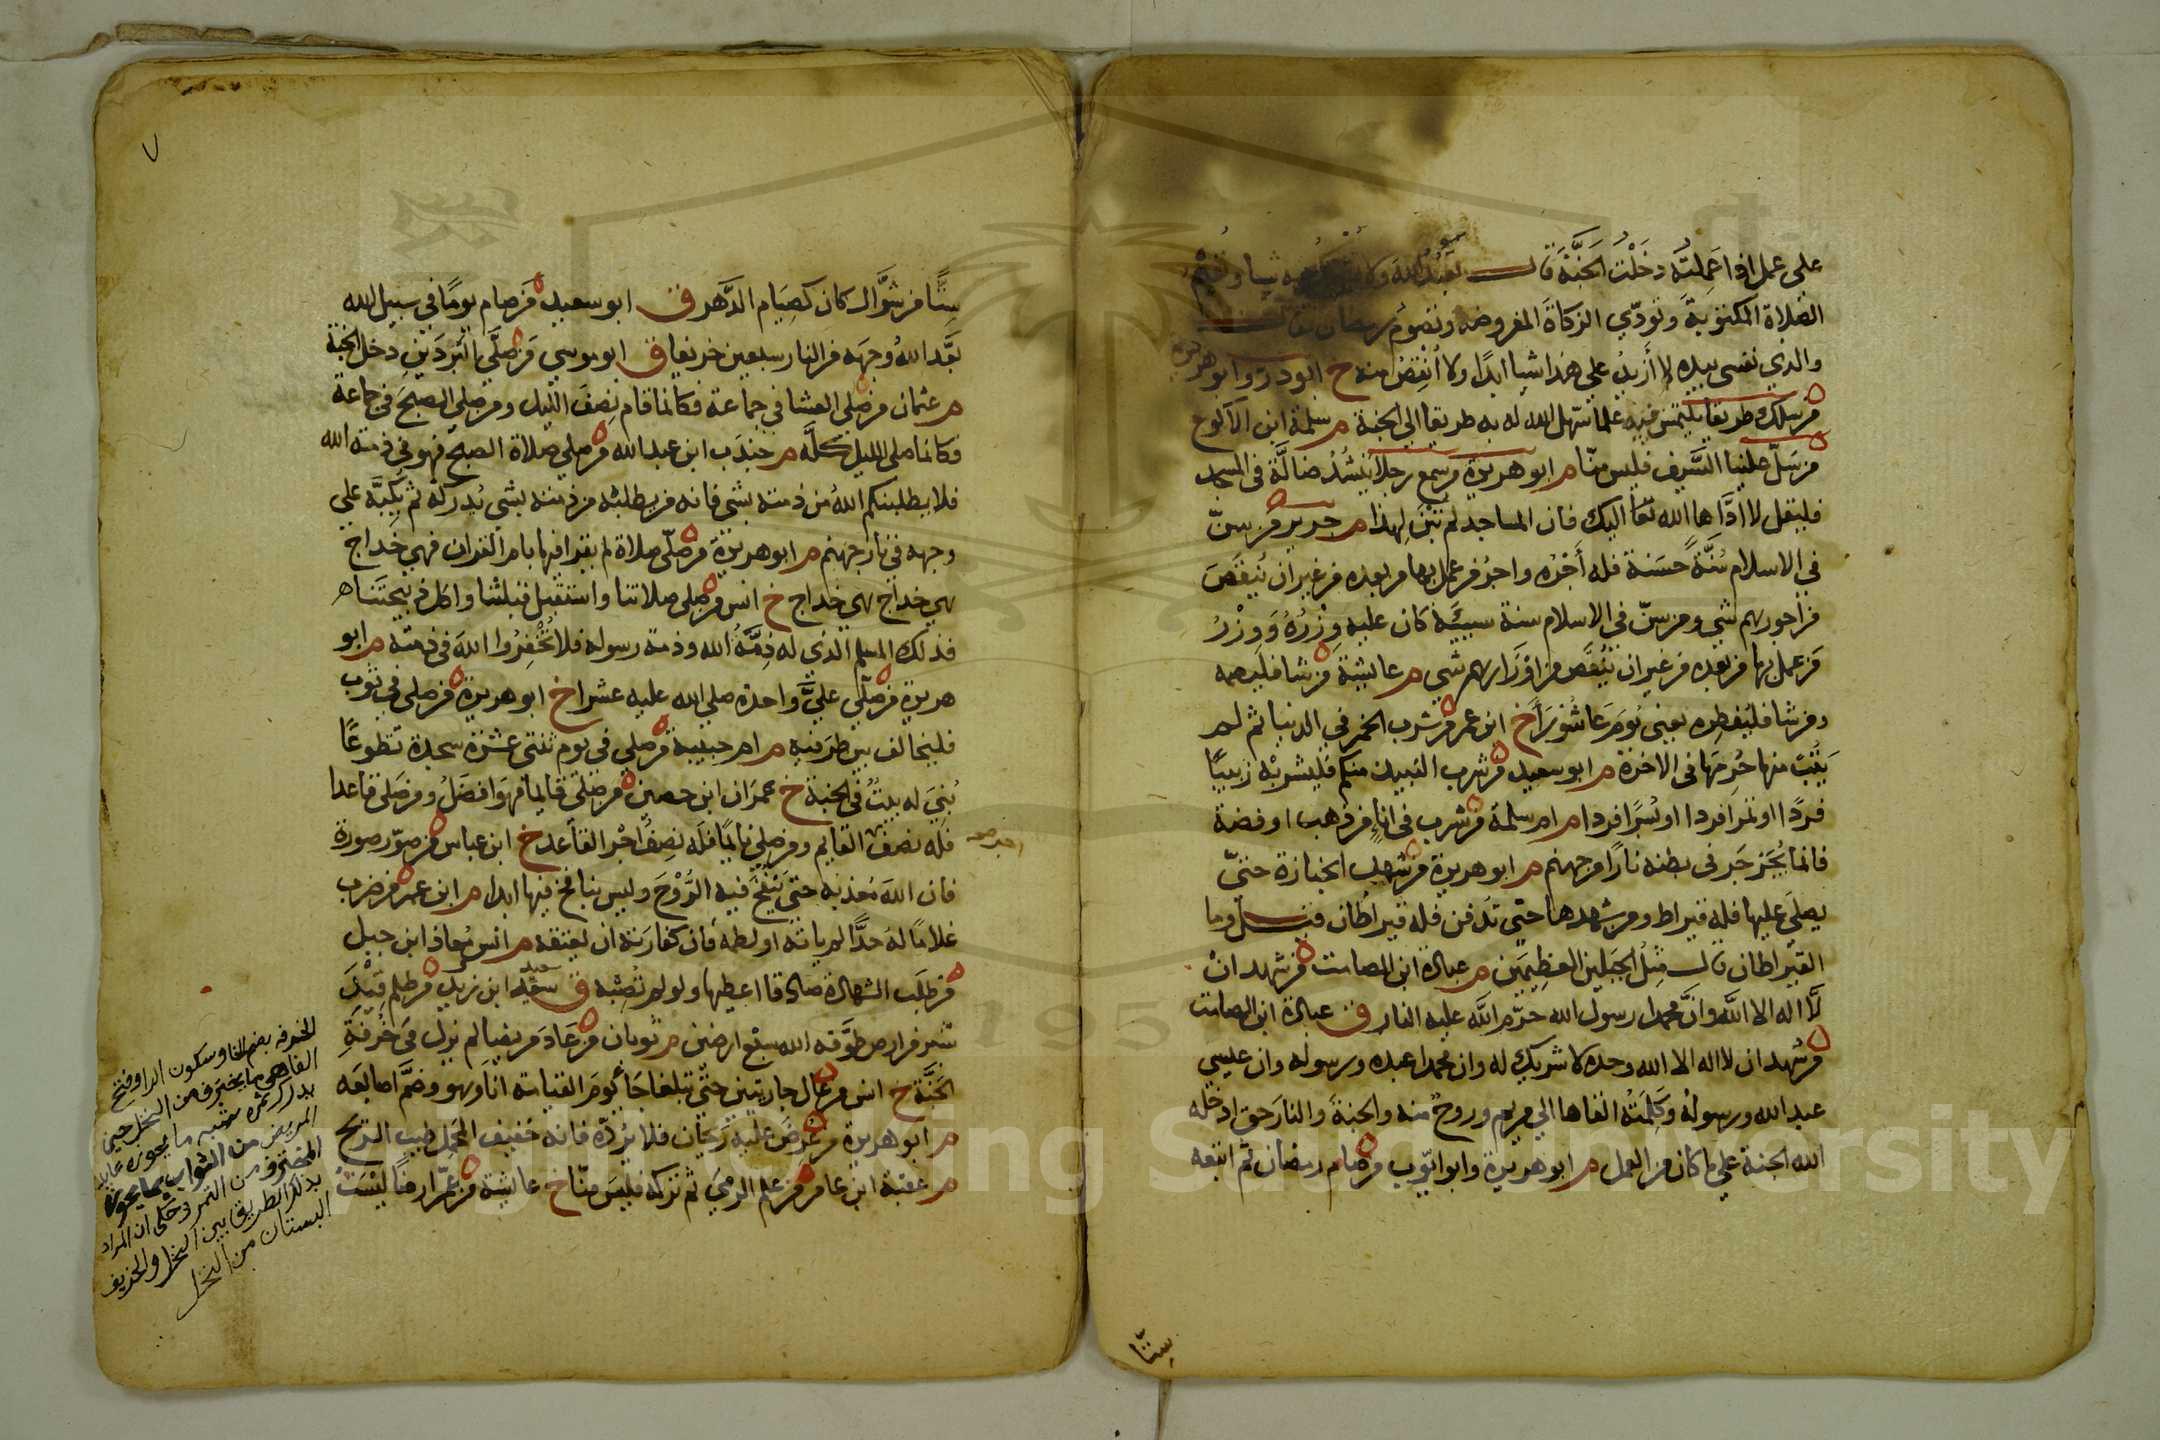 على عمل اذا عملته دخلت الجنة قال تعبد الله ولا تشرك به شيا وتقيم
الصلاة المكتوبة وتودي الزكاة المفروضة وتصوم رمضان فقال
والذي نفسي بيده لا أزيد علي هذا شيا ابدا ولا انقص منه خ ابو ذر وابو هريرة
من سلك طريقا يلتمس فيه علما سهل الله له به طريقا الى الجنة م سلمة ابن الاكوع
من سل علينا السيف فليس منا م ابو هريرة من سمع رجلا ينشد ضالة في المسجد
فليقل لا اداها الله تعا اليك فان المساجد لم تبن لهذا م جرير من سن
في الاسلام سنة حسنة فله أجره واجر من عمل بها من بعده من غير ان ينقص
من اجورهم شي ومن سن في الاسلام سنة سيئة كان عليه وزره ووزر
من عمل بها من بعده من غير ان ينقص من اوزارهم شي م عايشة من شا فليصمه
ومن شا فليفطره يعني يوم عاشورا خ ابن عمر من شرب الخمر في الدنيا ثم لم
يتب منها حرمها في الاخرة م ابو سعيد من شرب النبيذ منكم فليشربه زبيبا
فردا او تمرا فردا او بسرا فردا م ام سلمة من شرب في اناء من ذهب او فضة
فانما يجرجر في بطنه نارا من جهنم م ابو هريرة من شهد الجنازة حتى
يصلى عليها فله قيراط ومن شهدها حتى تدفن فله قيراطان قيل وما
القيراطان قال مثل الجبلين العظيمين م عبادة ابن الصامت من شهد ان
لا اله الا الله وان محمدا رسول الله حرم الله عليه النار ق عبادة ابن الصامت
من شهد ان لا اله الا الله وحده لا شريك له وان محمدا عبده ورسوله وان عيسي
عبد الله ورسوله وكلمته القاها الي مريم وروح منه والجنة والنار حق ادخله
الله الجنة علي ما كان من العمل م ابو هريرة وابو ايوب من صام رمضان ثم اتبعه
ستا
٧
ستا من شوال كان كصيام الدهر ق ابو سعيد من صام يوما في سبيل الله
بعد الله وجهه من النار سبعين خريفا ق ابو موسي من صلى البردين دخل الجنة
م عثمان من صلى العشا في جماعة فكانما قام نصف الليل ومن صلي الصبح في جماعة
فكانما صلى الليل كله م جندب ابن عبد الله من صلي صلاة الصبح فهو في ذمة الله
فلا يطلبنكم الله من ذمته بشي فانه من يطلبه من ذمته بشي يدركه ثم يكبه علي
وجهه في نار جهنم م ابو هريرة من صلى صلاة لم يقرا فيها بام القران فهي خداج
هي خداج هي خداج خ انس من صلى صلاتنا واستقبل قبلتنا واكل ذبيحتنا
فذلك المسلم الذي له ذمة الله وذمة رسوله فلا تخفروا الله في ذمته م ابو
هريرة من صلى علي واحدة صلى الله عليه عشرا خ ابو هريرة من صلي في ثوب
فليخالف بين طرفيه م ام حبيبة من صلي في يوم ثنتى عشرة سجدة تطوعا
بني له بيت في الجنة خ عمران ابن حصين من صلى قايما فهو افضل ومن صلى قاعدا
فله نصف القايم ومن صلي نايما فله نصف اجر القاعد خ ابن عباس من صور صورة
اجر صح
فان الله معذبه حتى ينفخ فيه الروح وليس بنافخ فيها ابدا م ابن عمر من ضرب
غلاما له حدا لم ياته او لطمه فان كفارته ان يعتقه م انس معاذ ابن جبل
من طلب الشهادة صادقا اعطيها ولو لم تصبه ق سعيد ابن زيد من ظلم قيد
شبر من ارض طوقه الله سبع ارضين م ثوبان من عاد مريضا لم يزل في خرفة
الجنة خ انس من عال جاريتين حتى تبلغا جا يوم القيامة انا وهو وضم اصابعه
م ابو هريرة من عرض عليه ريحان فلا يرده فانه خفيف المحمل طيب الريح
م عقبة ابن عامر من علم الرمي ثم تركه فليس منا خ عايشة من عمر ارضا ليست
الخرفه بضم الخا وسكون الرا وفتح
الفا هي ما يخترف من النخل حين
يدرك ثمره شبه ما يحوزه عايد
المريض من الثواب بما يحوزه
المخترف من الثمر وحكى ان المراد
بذلك الطريق بين النخل والخريف
البستان من النخل